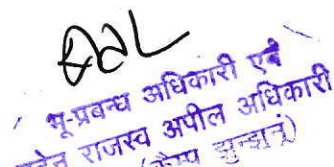 भू-प्रबन्ध अधिकारी एवं
राजस्व अपील अधिकारी
(कैम्प झुन्झुनूं)